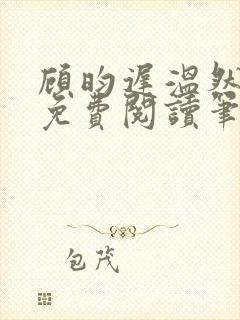 顾昀遲溫然
免費閱讀筆
包茂